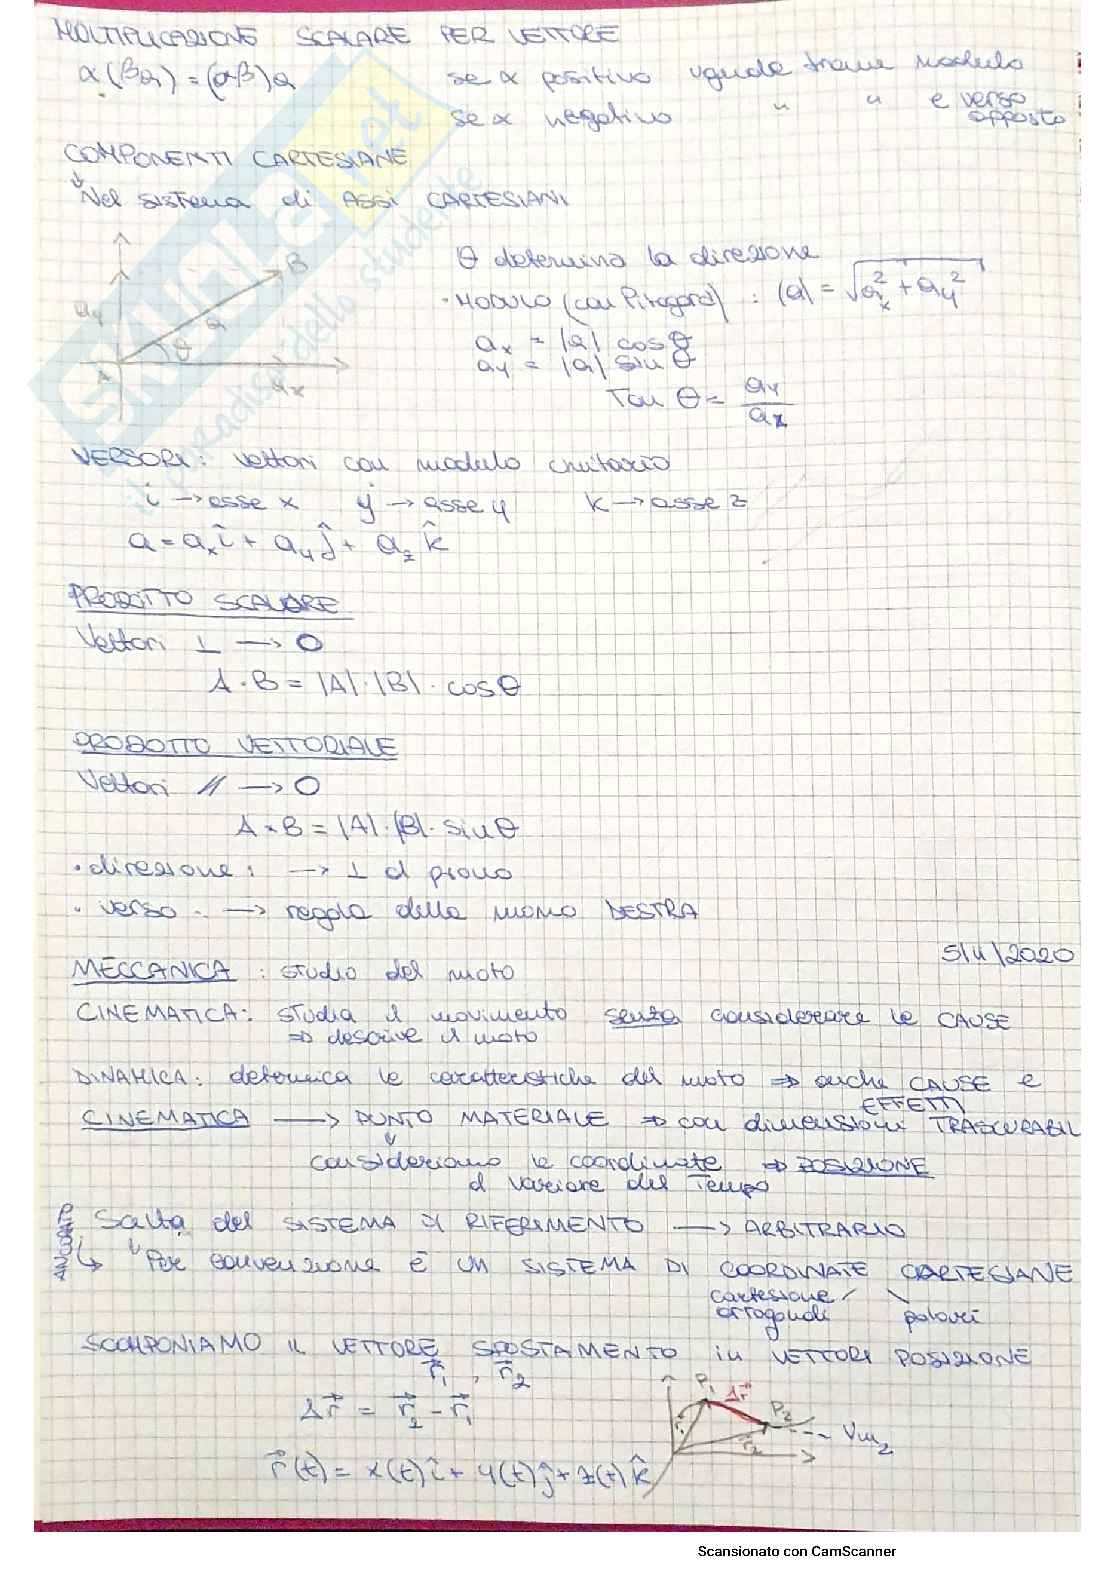 MOLTIPLICAZIONE SCALARE PER VETTORE
α(βa) = (αβ)a
se α positivo uguale tranne modulo
se α negativo " " e verso opposto
COMPONENTI CARTESIANE
↳ Nel sistema di ASSI CARTESIANI
B
ay
a
θ
A
ax
θ determina la direzione
• MODULO (con Pitagora) : |a| = √ax² + ay²
ax = |a| cos θ
ay = |a| sin θ
Tan θ = ay / ax
VERSORI: vettori con modulo unitario
i → asse x j → asse y k → asse z
a = ax î + ay ĵ + az k̂
PRODOTTO SCALARE
Vettori ⊥ → 0
A · B = |A| · |B| · cos θ
PRODOTTO VETTORIALE
Vettori // → 0
A × B = |A| · |B| · sin θ
• direzione: → ⊥ al piano
• verso: → regola della mano DESTRA
5/11/2020
MECCANICA : studio del moto
CINEMATICA: studia il movimento senza considerare le CAUSE
⇒ descrive il moto
DINAMICA: determina le caratteristiche del moto ⇒ anche CAUSE e
EFFETTI
CINEMATICA → PUNTO MATERIALE ⇒ con dimensioni TRASCURABIL
↓
consideriamo le coordinate ⇒ POSIZIONE
al variare del Tempo
Scelta del SISTEMA DI RIFERIMENTO → ARBITRARIO
↳ Per convenzione è UN SISTEMA DI COORDINATE CARTESIANE
cartesiane ortogonali
polari
SCOMPONIAMO IL VETTORE SPOSTAMENTO in VETTORI POSIZIONE
r⃗1 , r⃗2
Δr⃗ = r⃗2 - r⃗1
r⃗(t) = x(t) î + y(t) ĵ + z(t) k̂
P1
Δr⃗
P2
r1
r2
Vm2
SKUOLA.net
il paradiso dello studente
Scansionato con CamScanner